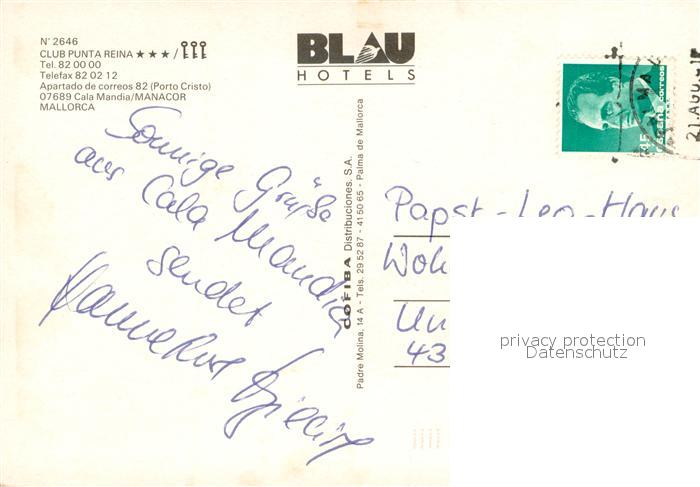 N° 2646
CLUB PUNTA REINA ★★★ /
Tel. 82 00 00
Telefax 82 02 12
Apartado de correos 82 (Porto Cristo)
07689 Cala Mandia/MANACOR
MALLORCA
BLAU
HOTELS
Sonnige Grüße
aus Cala Mandia
sendet
Hannelore
COFIBA Distribuciones, S.A.
Padre Molina, 14 A - Tels. 29 52 87 - 41 50 65 - Palma de Mallorca
45 España correos
21 AGO
Papst-Leo-Haus
43
privacy protection
Datenschutz